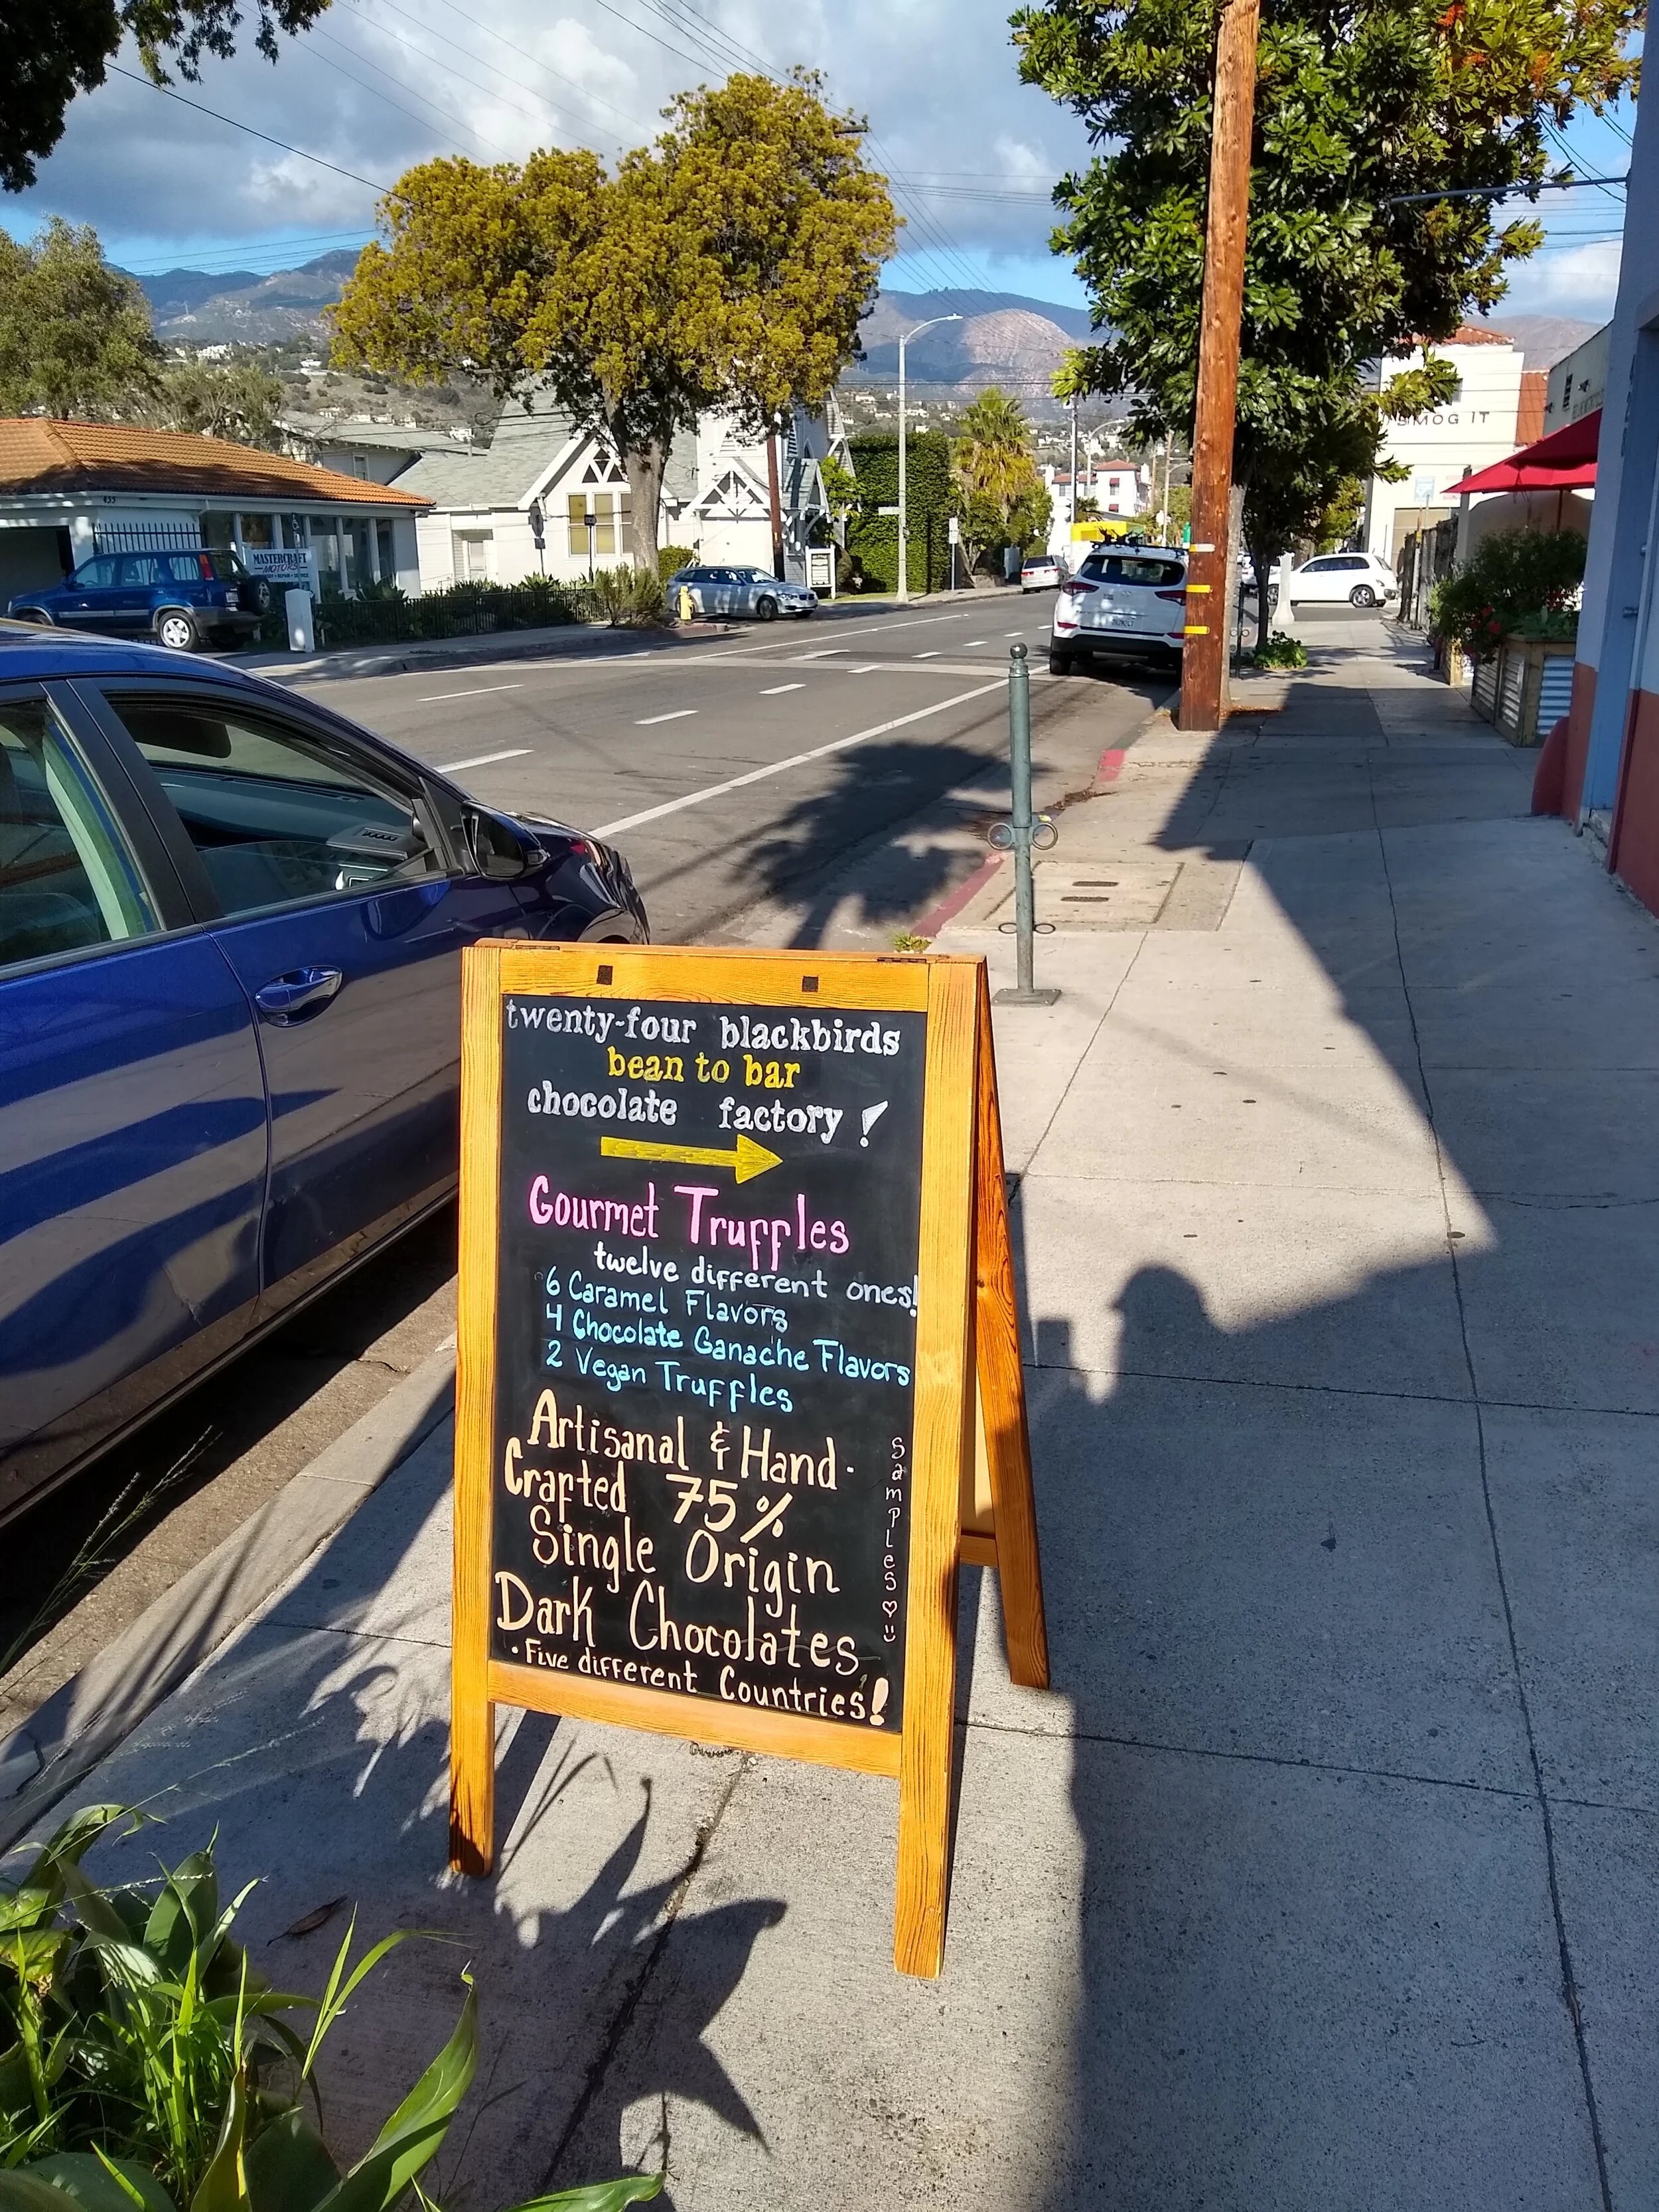 twenty-four blackbirds
bean to bar
chocolate factory!
Gourmet Truffles
twelve different ones!
6 Caramel Flavors
4 Chocolate Ganache Flavors
2 Vegan Truffles
Artisanal & Hand-
Crafted 75%
Single Origin
Dark Chocolates
• Five different Countries!
Samples
MASTERCRAFT
MOTORS
SMOG IT
435